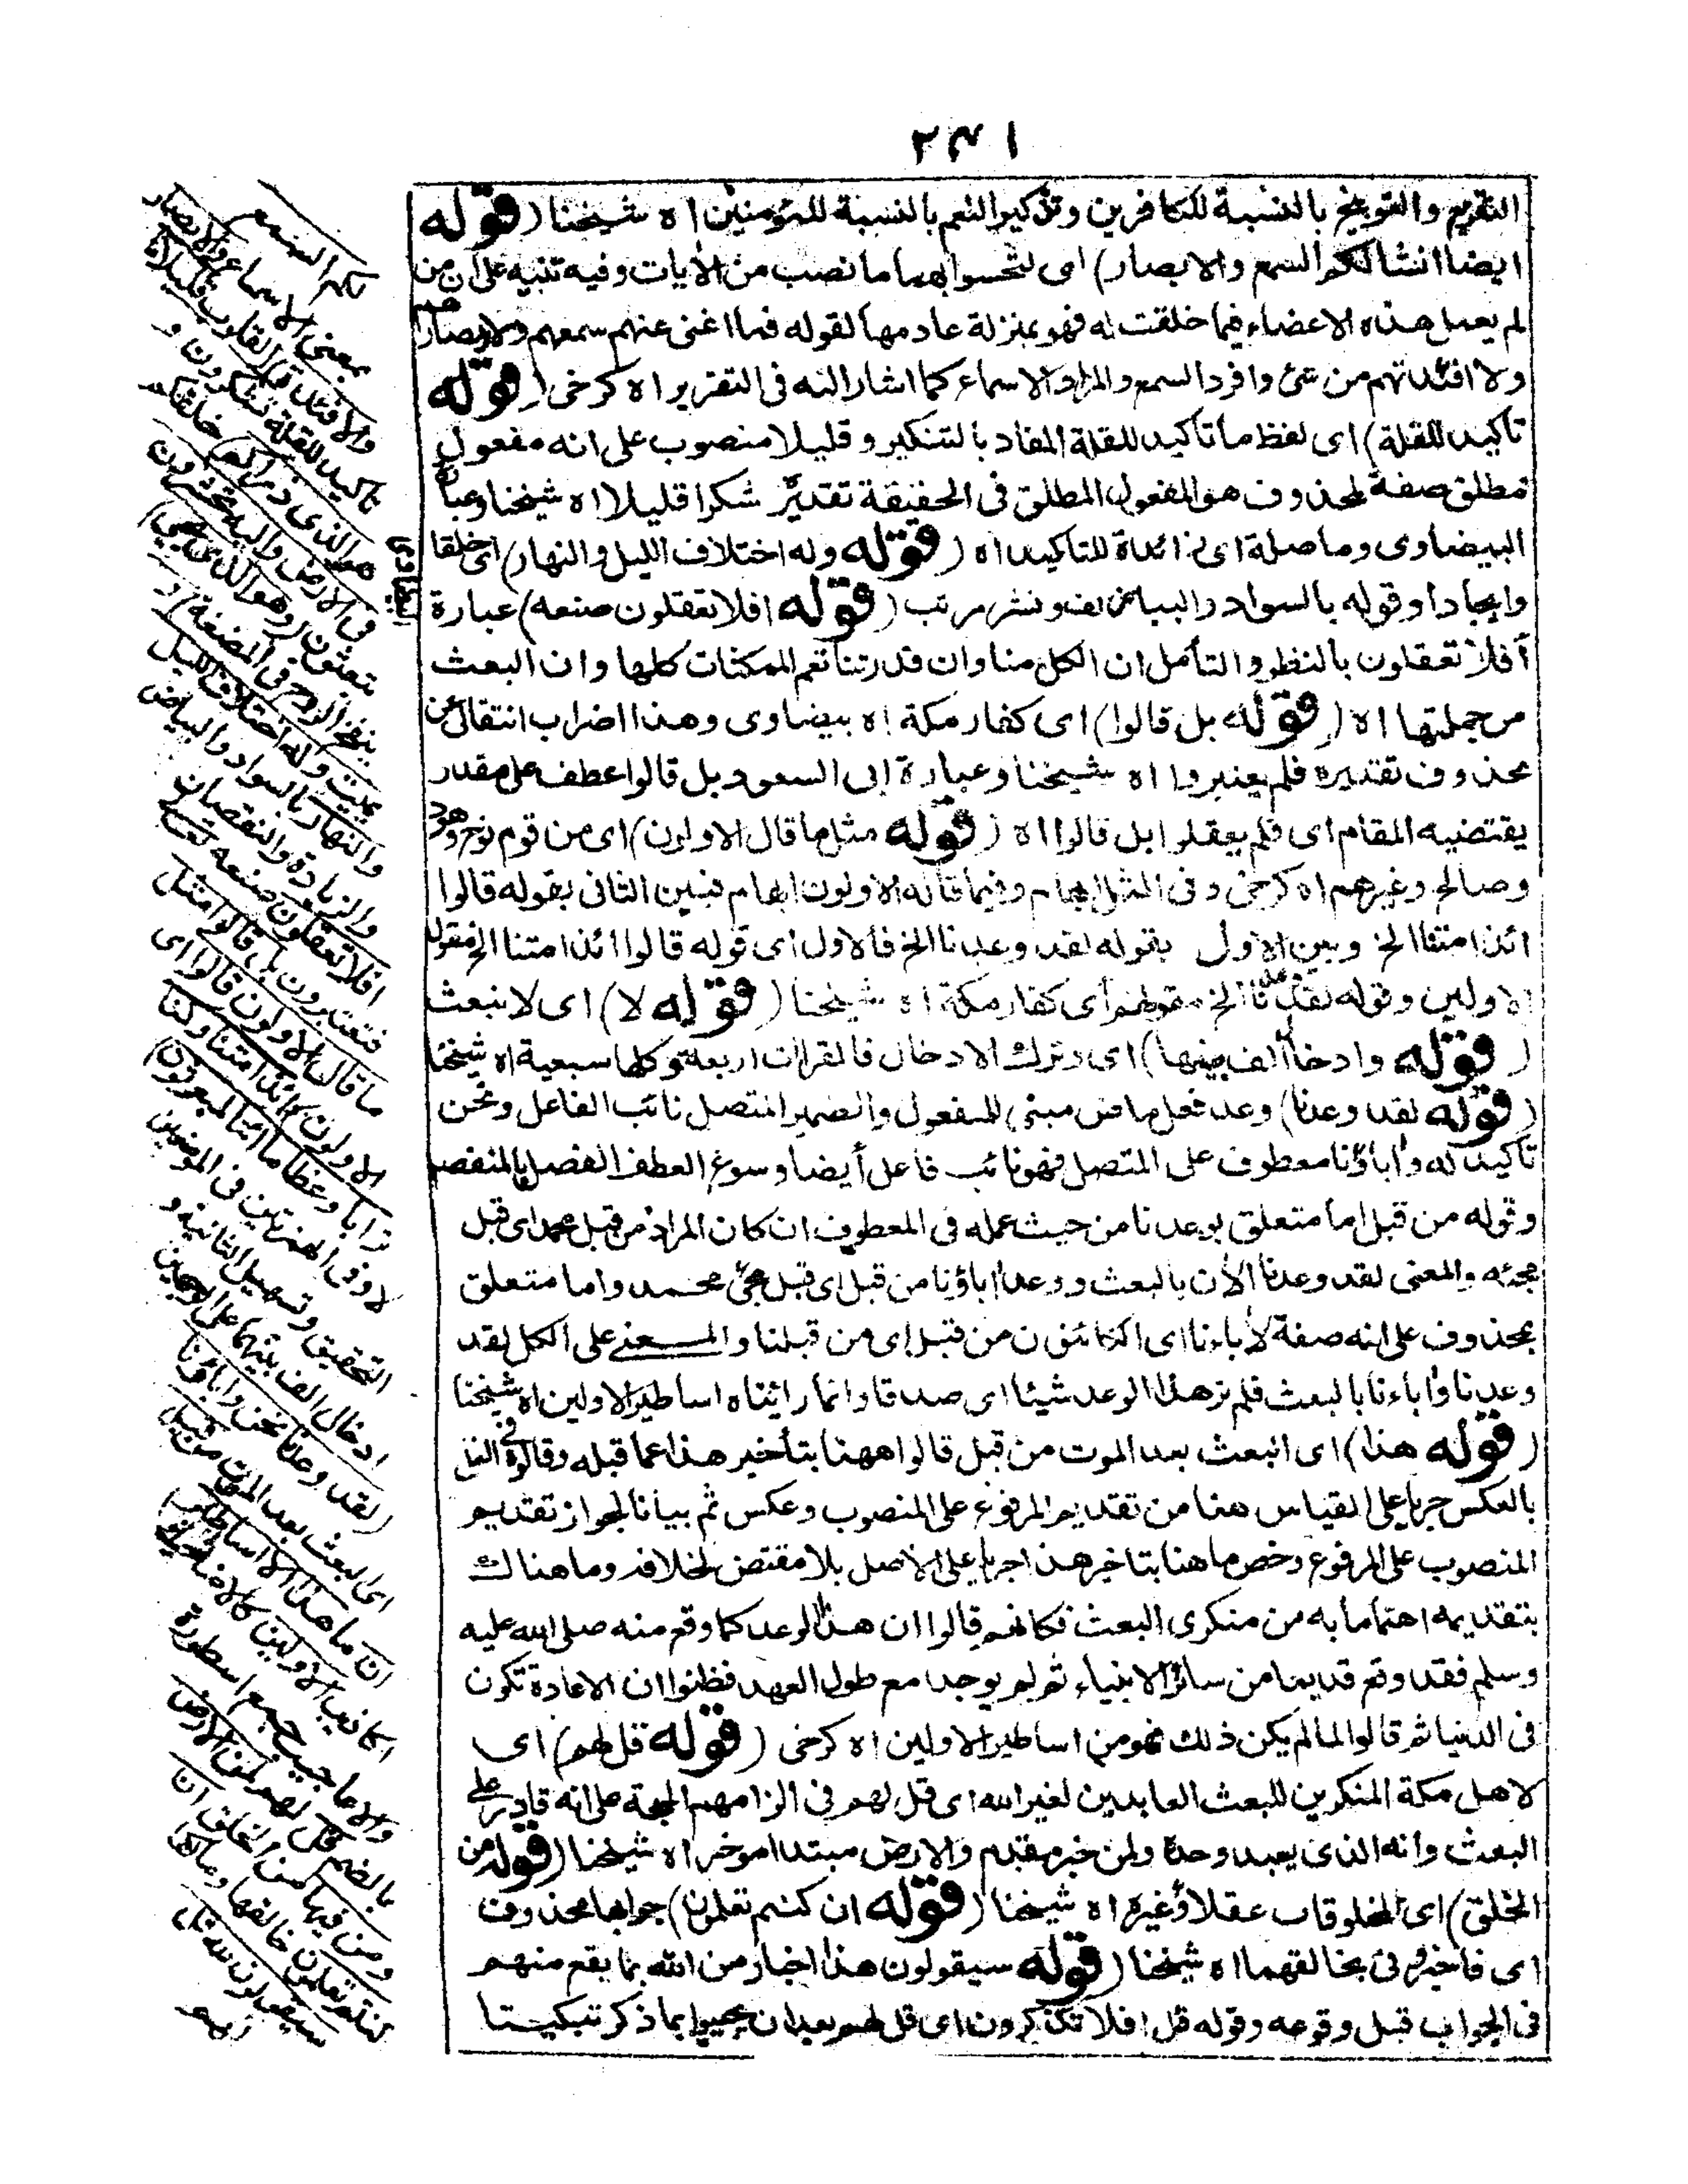 ٢٣١
التقريع والتوبيخ بالنسبة للكافرين وتذكير النعم بالنسبة للمؤمنين اه شيخنا (قوله
ايضا انشا لكم السمع والابصار) اى لتحسوا بهما ما نصب من الأيات وفيه تنبيه على ان من
لم يعمل هذه الاعضاء فيما خلقت له فهو بمنزلة عادمها لقوله فما اغنى عنهم سمعهم ولا ابصارهم
ولا افئدتهم من شئ وافرد السمع والمراد الاسماع كما اشار اليه فى التقرير اه كرخى (قوله
تأكيد للقلة) اى لفظ ما تأكيد للقلة المفاد بالتنكير وقليلا منصوب على انه مفعول
مطلق صفة لمحذوف هو المفعول المطلق فى الحقيقة تقديره شكرا قليلا اه شيخنا وعبارة
البيضاوى وما صلة اى زائدة للتاكيد اه (قوله وله اختلاف الليل والنهار) اى خلقا
وايجادا وقوله بالسواد والبياض لف ونشر مرتب (قوله افلا تعقلون صنعه) عبارة البيضاوى
أفلا تعقلون بالنظر والتأمل ان الكل منا وان قدرتنا تعم الممكنات كلها وان البعث
من جملتها اه (قوله بل قالوا) اى كفار مكة اه بيضاوى وهذا اضراب انتقالى عن
محذوف تقديره فلم يعتبروا اه شيخنا وعبارة ابى السعود بل قالوا عطف على مقدر
يقتضيه المقام اى فلم يعقلوا بل قالوا اه (قوله مثل ما قال الاولون) اى من قوم نوح وهود
وصالح وغيرهم اه كرخى وفى المثل ابهام وفيما قاله الاولون ابهام فبين الثانى بقوله قالوا
ائذا متنا الخ وبين الاول بقوله لقد وعدنا الخ فالاول اى قوله قالوا ائذا متنا الخ مقول
الاولين وقوله لقد وعدنا الخ مقولهم أى كفار مكة اه شيخنا (قوله لا) اى لا نبعث
(قوله وادخال ألف بينهما) اى وترك الادخال فالقراآت اربعة وكلها سبعية اه شيخنا
(قوله لقد وعدنا) وعد فعل ماض مبنى للمفعول والضمير المتصل نائب الفاعل ونحن
تاكيد له وأباؤنا معطوف على المتصل فهو نائب فاعل أيضا وسوغ العطف الفصل بالمنفصل
وقوله من قبل اما متعلق بوعدنا من حيث عمله فى المعطوف ان كان المراد من قبل محمد اى قبل
مجئه والمعنى لقد وعدنا الأن بالبعث ووعد اباؤنا من قبل اى قبل مجئ محمد واما متعلق
بمحذوف على انه صفة لأباءنا اى الكائنون من قبل اى من قبلنا والمعنى على الكل لقد
وعدنا وأباءنا بالبعث فلم نر هذا الوعد شيئا اى صدقا وانما رائيناه اساطير الاولين اه شيخنا
(قوله هذا) اى البعث بعد الموت من قبل قالوا ههنا بتأخير هذا عما قبله وقالوه فى النمل
بالعكس جريا على القياس هنا من تقديم المرفوع على المنصوب وعكس ثم بيانا لجواز تقديم
المنصوب على المرفوع وخص ما هنا بتاخير هذا جريا على الاصل بلا مقتض لخلافه وما هناك
بتقديمه اهتماما به من منكرى البعث فكانهم قالوا ان هذا الوعد كما وقع منه صلى الله عليه
وسلم فقد وقع قديما من سائر الانبياء ثم لم يوجد مع طول العهد فظنوا ان الاعادة تكون
فى الدنيا ثم قالوا لما لم يكن ذلك فهو من اساطير الاولين اه كرخى (قوله قل لهم) اى
لاهل مكة المنكرين للبعث العابدين لغير الله اى قل لهم فى الزامهم الحجة على انه قادر على
البعث وانه الذى يعبد وحده ولمن خبر مقدم والارض مبتدا موخر اه شيخنا (قوله من
الخلق) اى المخلوقات عقلا وغيره اه شيخنا (قوله ان كنتم تعلمون) جوابها محذوف
اى فاخبرونى بخالقهما اه شيخنا (قوله سيقولون هذا اخبار من الله بما يقع منهم
فى الجواب قبل وقوعه وقوله قل افلا تذكرون اى قل لهم بعد ان يجيبوا بما ذكر تبكيتا
لكم السمع
بمعنى الاسماع والابصار
والافئدة القلوب قليلا ما
تاكيد للقلة تشكرون و
هو الذى ذرأكم خلقكم
فى الارض واليه تحشرون
تبعثون وهو الذى يحيى
ينفخ الروح فى المضغة و
يميت وله اختلاف الليل
والنهار بالسواد والبياض
والزيادة والنقصان
افلا تعقلون صنعه تعالى
فتعتبرون بل قالوا مثل
ما قال الاولون قالوا اى
الاولون ائذا متنا وكنا
ترابا وعظاما ائنا لمبعوثون
لا وفى الهمزتين فى الموضعين
التحقيق وتسهيل الثانية و
ادخال الف بينهما على الوجهين
لقد وعدنا نحن واباؤنا
هذا اى البعث بعد الموت من قبل
ان ما هذا الا اساطير
اكاذيب الاولين كالاضاحيك
والاعاجيب جمع اسطورة
بالضم قل لهم لمن الارض
ومن فيها من الخلق ان
كنتم تعلمون خالقها ومالكها
سيقولون لله قل
لهم